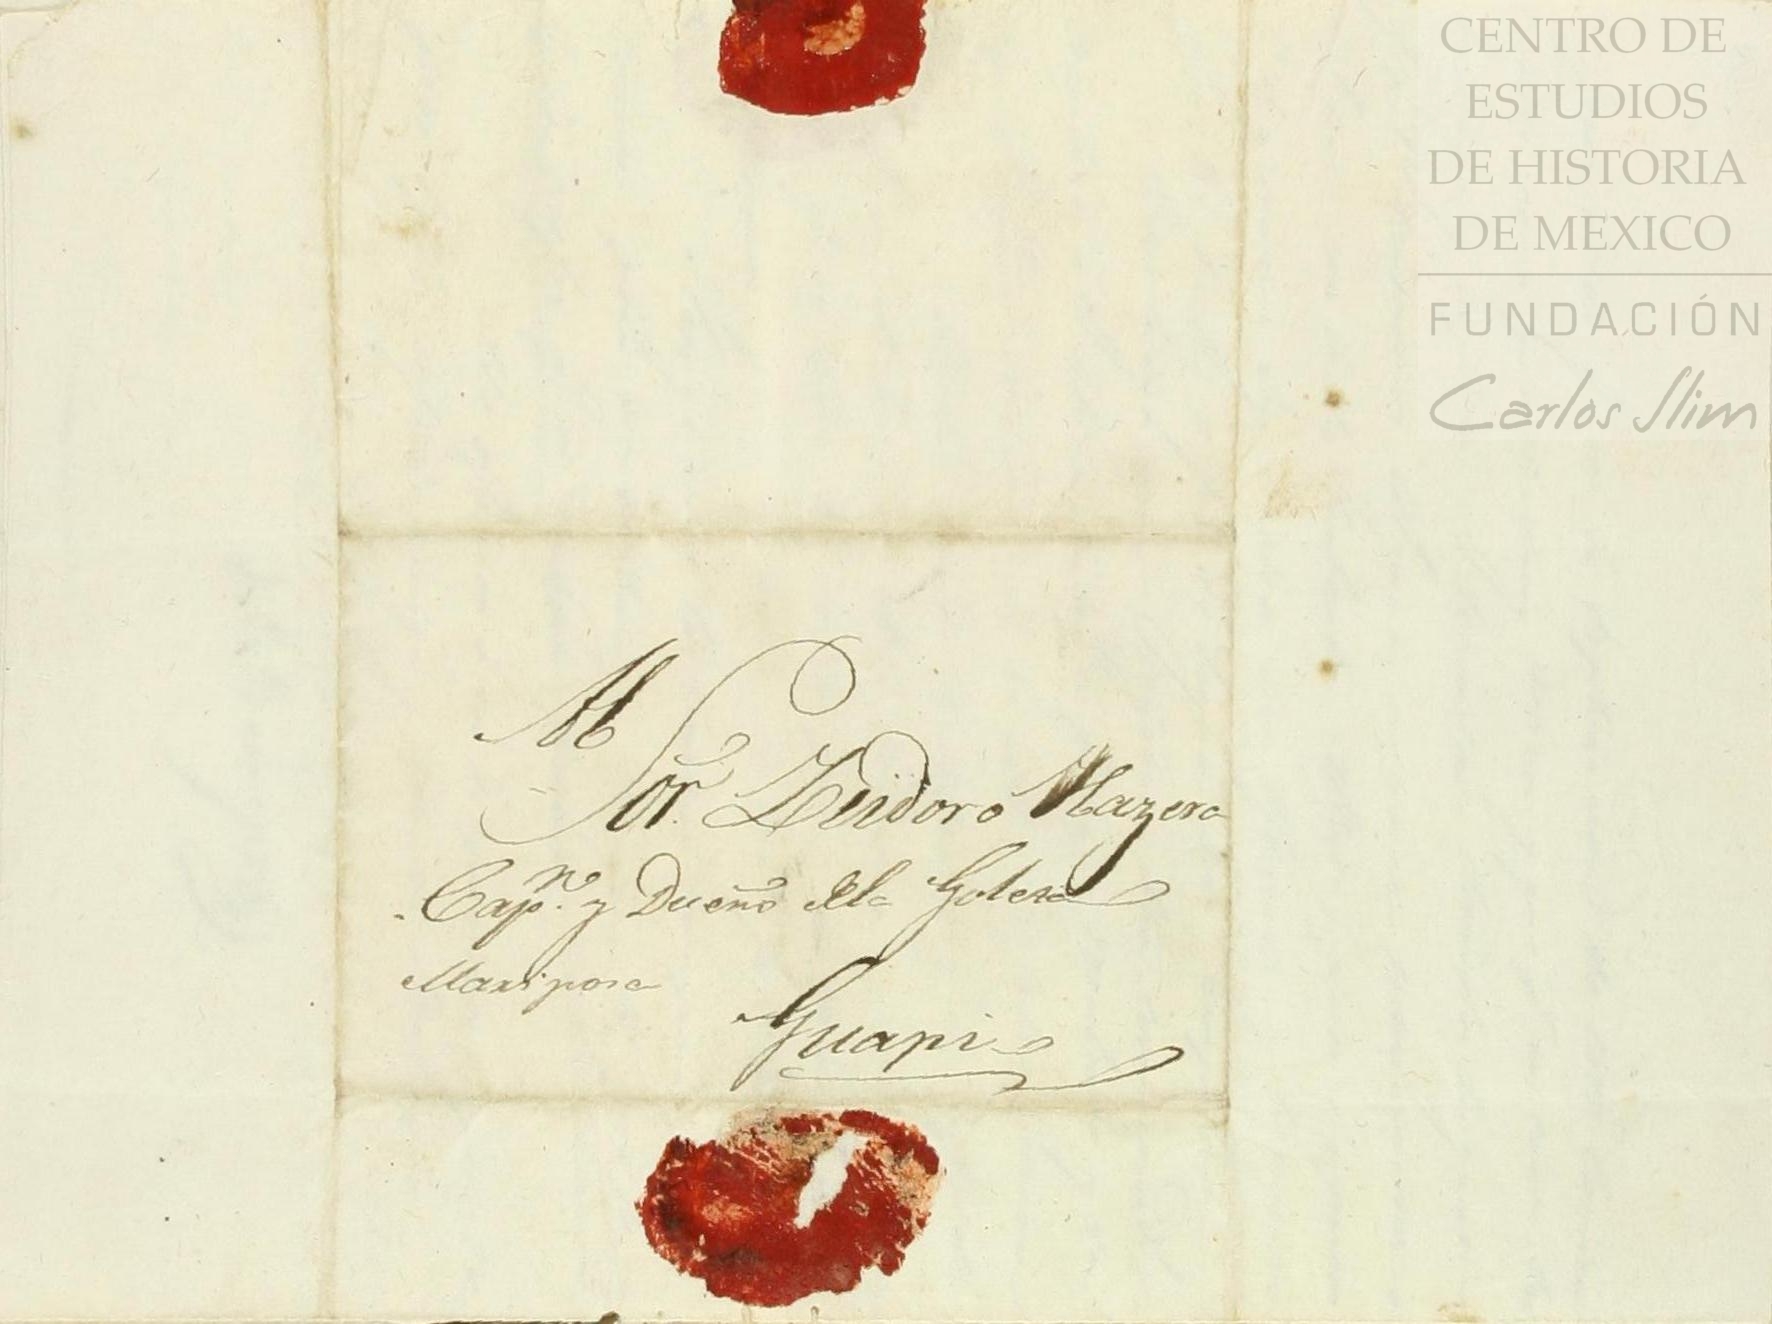 CENTRO DE
ESTUDIOS
DE HISTORIA
DE MEXICO
FUNDACIÓN
Carlos Slim
Al
Sor. Isidoro Mazera
Capn. y Dueño dela Goleta
Mariposa
Guapi